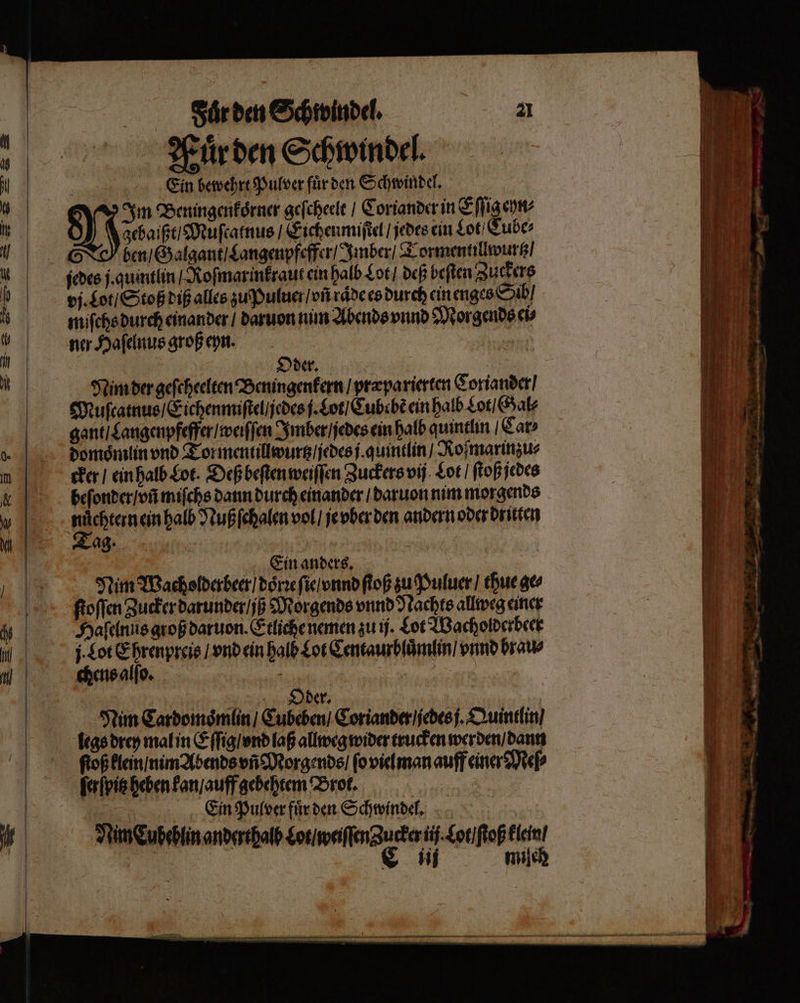 Für den Schwindel. 21
Für den Schwindel.
Ein bewehrt Pulver für den Schwindel.
NIm Beningenkörner gescheelt / Coriander in Essig eyn⸗
gebaißt / Muscatnus / Eichenmistel / jedes ein Lot / Cube⸗
ben / Galgant / Langenpfeffer / Imber / Tormentillwurtz /
jedes j. quintlin / Rosmarinkraut ein halb Lot / deß besten Zuckers
vj. Lot / Stoß diß alles zu Puluer / vñ räde es durch ein enges Sib /
mischs durch einander / daruon nim Abends vnnd Morgends ei⸗
ner Haselnus groß eyn.
Oder.
Nim der gescheelten Beningenkern / præparierten Coriander /
Muscatnus / Eichenmistel / jedes j. Lot / Cubebē ein halb Lot / Gal⸗
gant / Langenpfeffer / weissen Imber / jedes ein halb quintlin / Car⸗
domömlin vnd Tormentillwurtz / jedes j. quintlin / Rosmarinzu⸗
cker / ein halb Lot. Deß besten weissen Zuckers vij. Lot / stoß jedes
besonder / vñ mischs dann durch einander / daruon nim morgends
nüchtern ein halb Nußschalen vol / je vber den andern oder dritten
Tag.
Ein anders.
Nim Wacholderbeer / dörre sie / vnnd stoß zu Puluer / thue ge⸗
stossen Zucker darunder / jß Morgends vnnd Nachts allweg einer
Haselnus groß daruon. Etliche nemen zu ij. Lot Wacholderbeer
j. Lot Ehrenpreis / vnd ein halb Lot Centaurblümlin / vnnd brau⸗
chens also.
Oder.
Nim Cardomömlin / Cubeben / Coriander / jedes j. Quintlin /
legs drey mal in Essig / vnd laß allweg wider trucken werden / dann
stoß klein / nim Abends vñ Morgends / so viel man auff einer Mes⸗
serspitz heben kan / auff gebehtem Brot.
Ein Pulver für den Schwindel.
Nim Cubeblin anderthalb Lot / weissen Zucker iij. Lot / stoß klein /
C iij misch